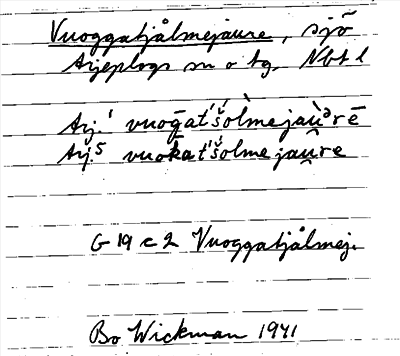 Vuoggatjålmejaure, sjö
Arjeplogs sn o tg. Nbt l
Arj.¹ vuoḡat́š́òlmejaùᵊrē
Arj.⁵ vuoḱat́š́olmejau̯re
G 19 c 2 Vuoggatjålmej.
Bo Wickman 1941